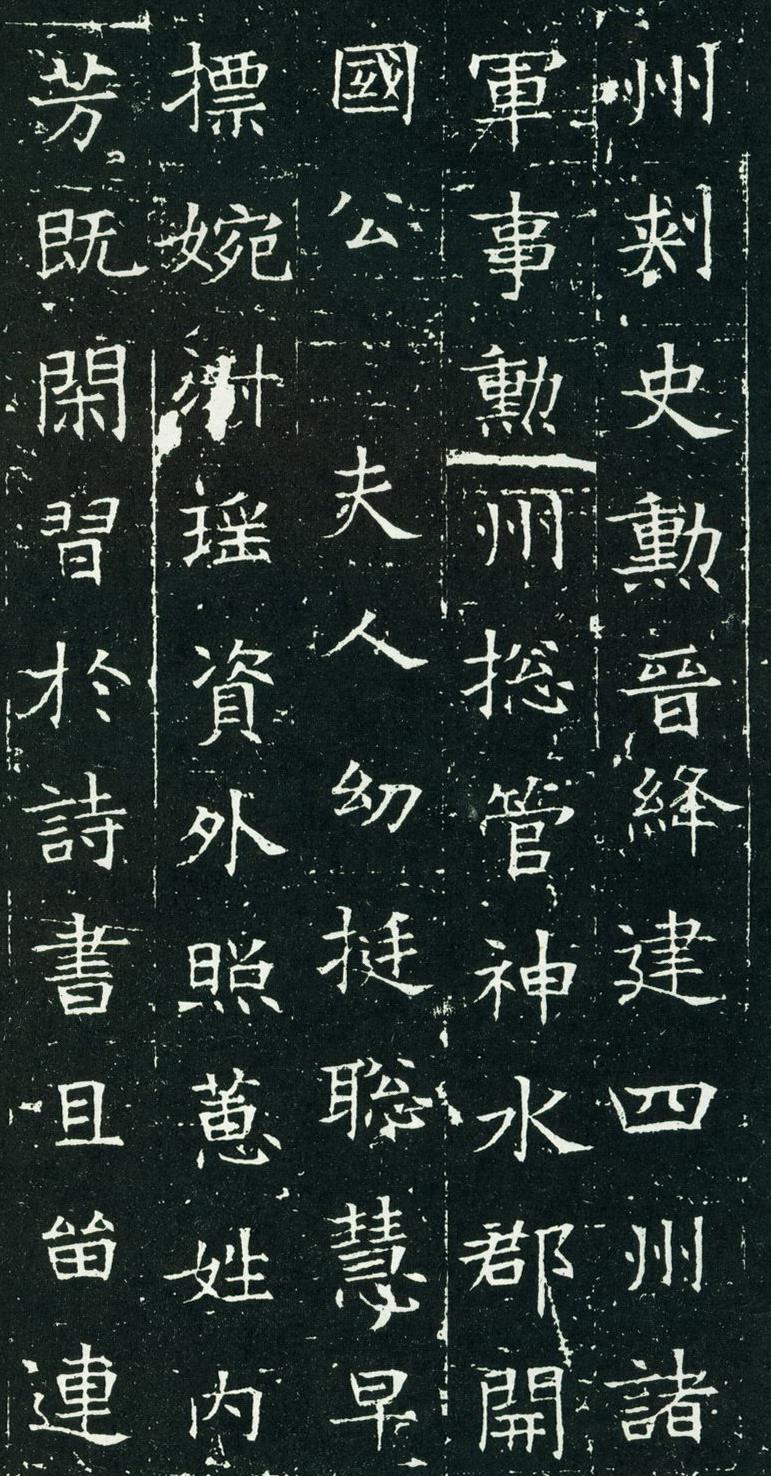 州刾史勲晉絳建四州諸
軍事勲州揔管神水郡開
國公 夫人幼挺聡慧早
摽婉淑瑶資外照蕙姓内
芳既閑習於詩書且留連